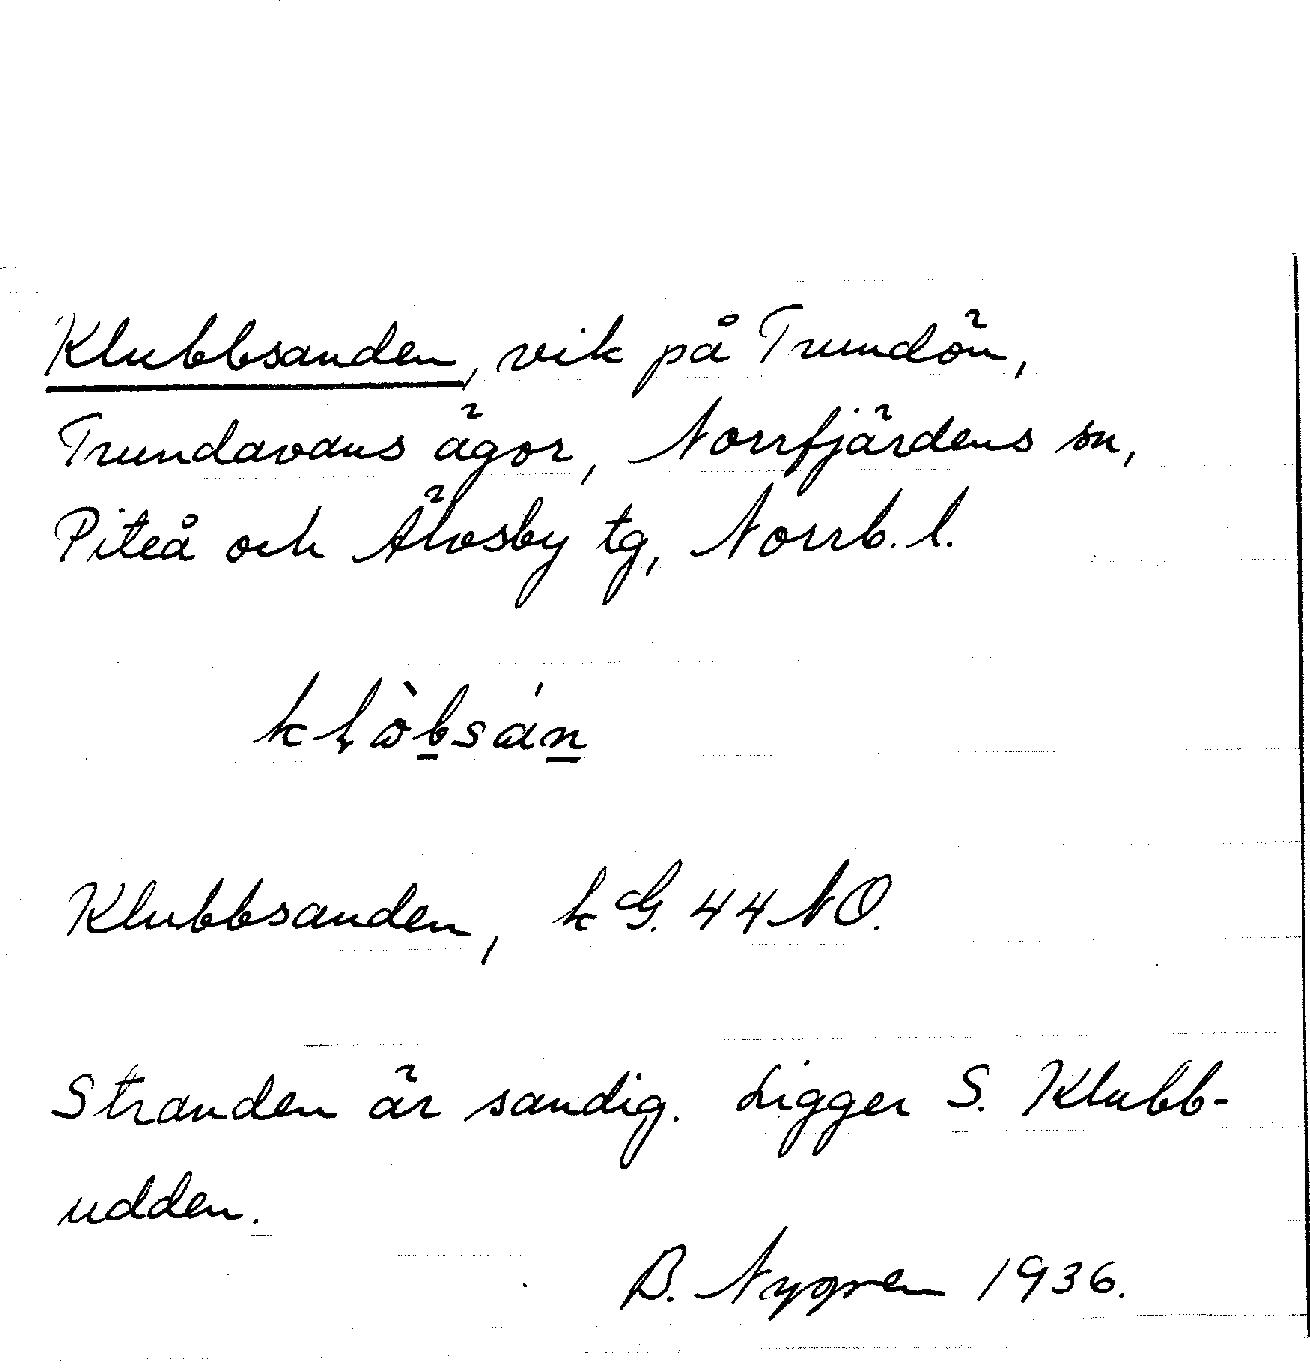 Klubbsanden, vik på Trundön,
Trundavans ägor, Norrfjärdens sn,
Piteå och Älvsby tg, Norrb. l.
Klubbsanden, k G. 44 NO.
Stranden är sandig. Ligger S. Klubb-
udden.
B. Nygren 1936.